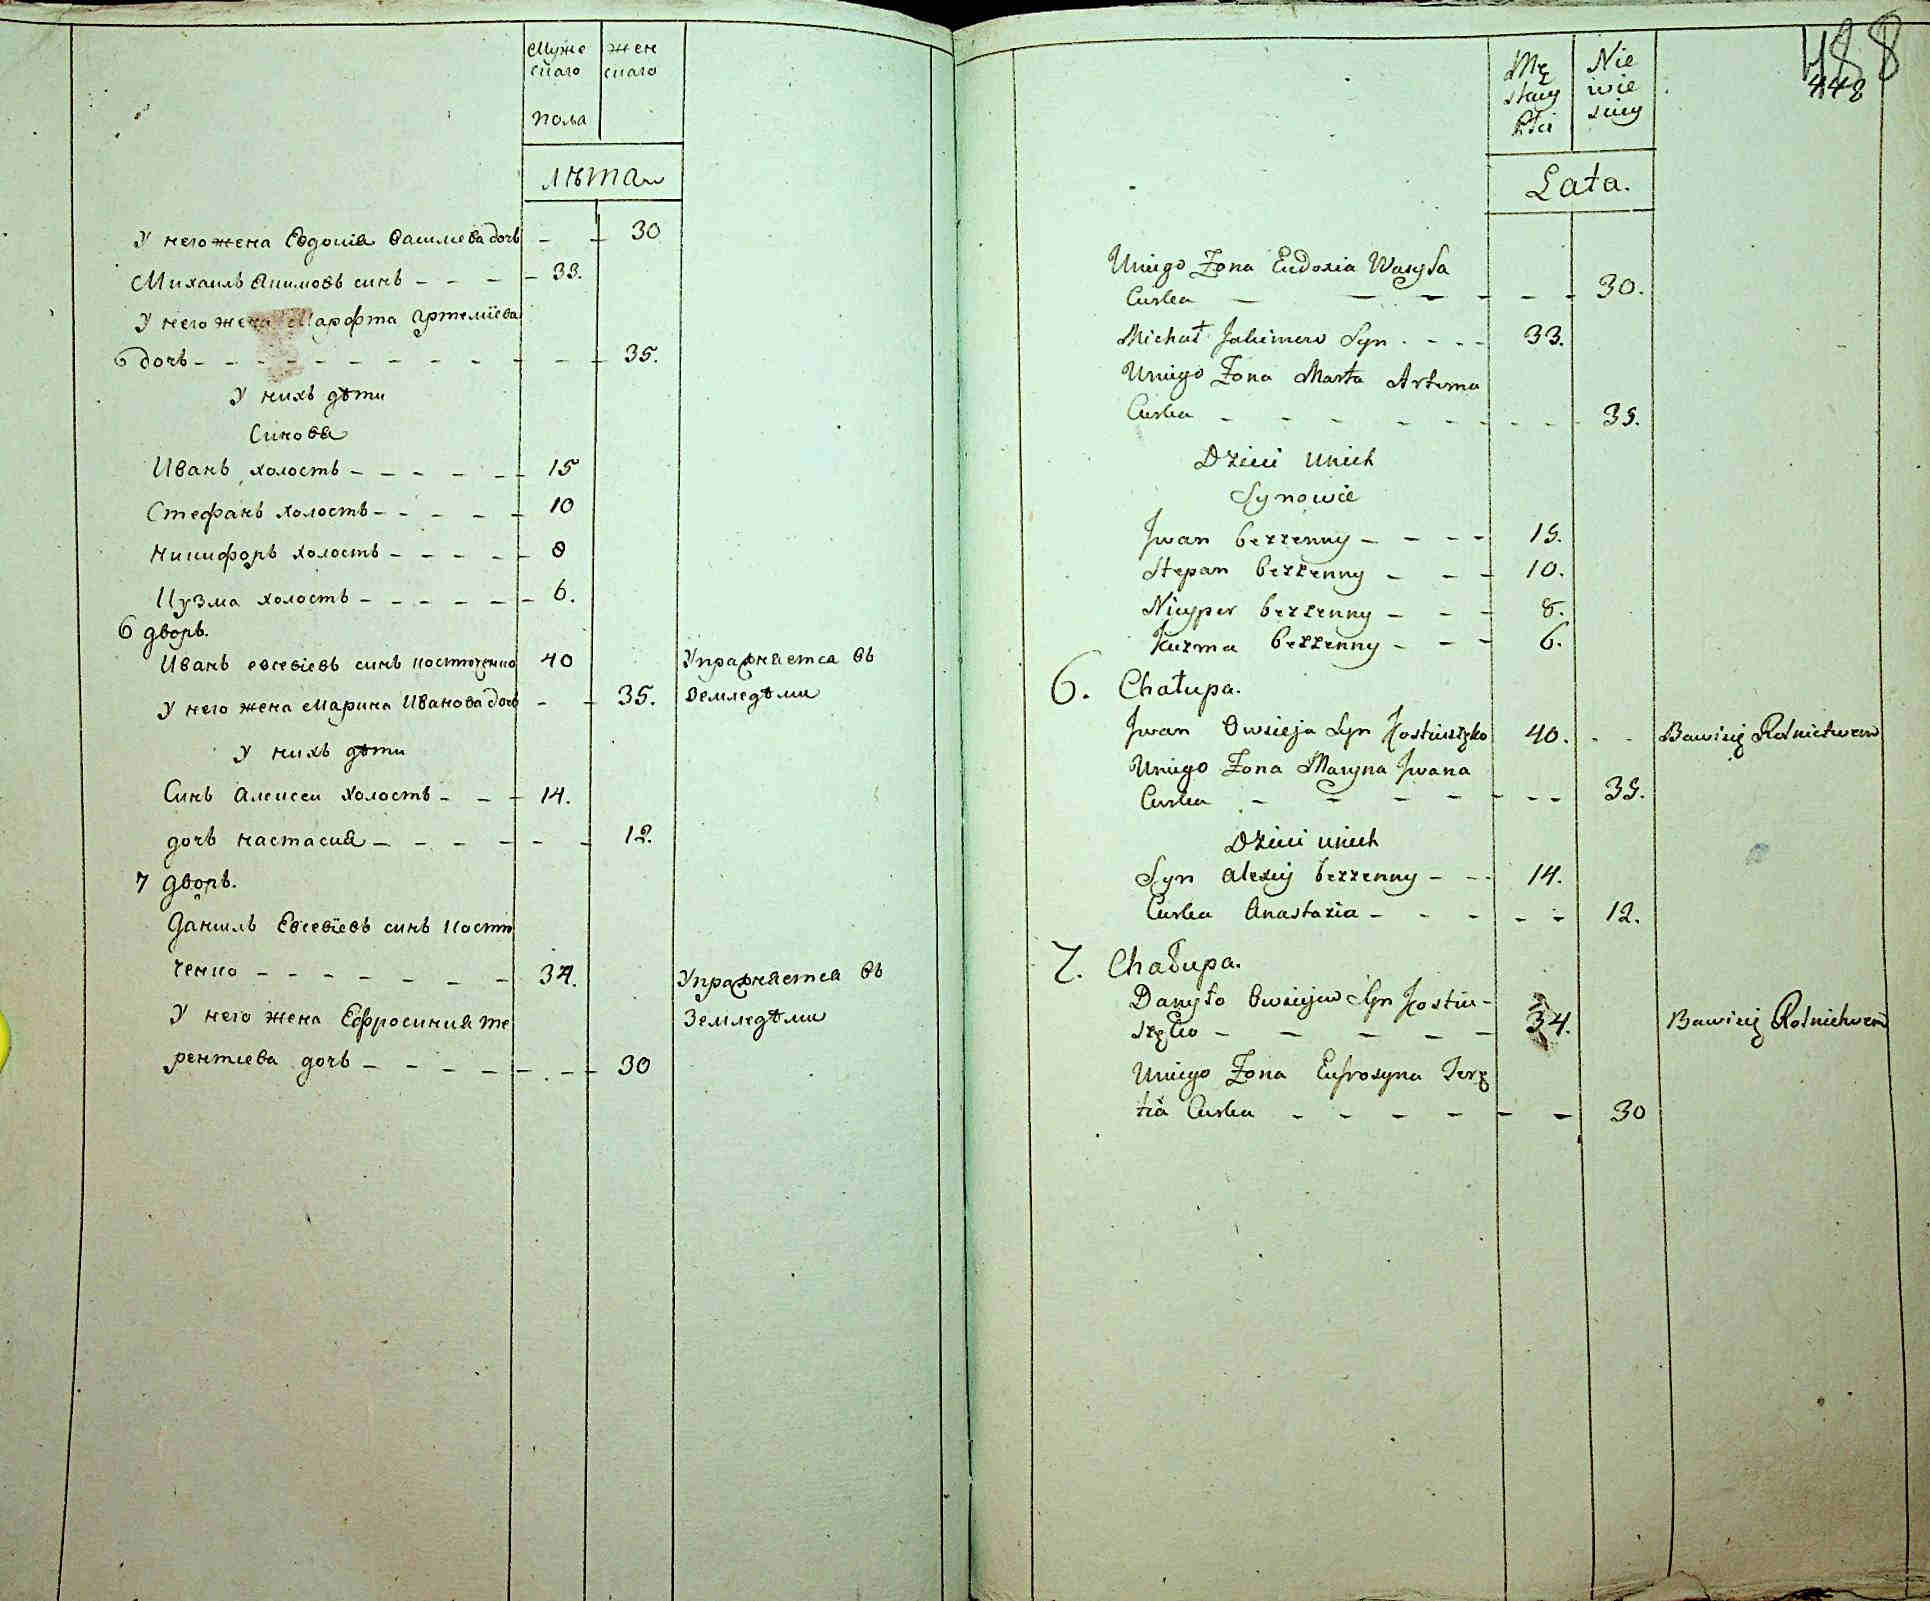 Муже
скаго
пола
жен
скаго
лѣта
У него жена Евдокія Васильева дочь - - 30
Михаилъ Якимовъ синъ - - - - 33.
У него жена Марфта Артеміева
дочь - - - - - - - - - - 35.
У нихъ дѣти
Синовя
Иванъ холостъ - - - - - 15
Стефанъ холостъ - - - - - 10
Никифоръ холостъ - - - - - 8
Кузма холостъ - - - - - - 6.
6 дворъ.
Иванъ евсевіевъ синъ костюченко 40 Упражняется въ
У него жена Марина Иванова дочь - - 35. Земледѣли
У нихъ дѣти
Синъ Алексеи холостъ - - - 14.
дочь настасия - - - - - - - 12.
7 дворъ.
Данилъ Евсевіевъ синъ Костю
ченко - - - - - - - 34. Упражняется въ
У него жена Ефросиния Те Земледѣли
рентиева дочь - - - - - - - - 30
488
448
Mę
skiey
Płci
Nie
wie
sciey
Lata.
Uniego Zona Eudoxia Wasyla
Curka - - - - - - 30.
Michał Jakimow Syn - - - - 33.
Uniego Zona Marta Artema
Curka - - - - - - - - - 35.
Dzieci unich
Synowie
Jwan bezzenny - - - - 15.
Stepan bezzenny - - - 10.
Nicyper bezzenny - - - 8.
Kuzma bezzenny - - - 6.
6. Chałupa.
Jwan Owsieja Syn Kostiuszko 40. - - Bawi się Rolnictwem
Uniego Zona Maryna Jwana
Curka - - - - - - - 35.
Dzieci unich
Syn alexiy bezzenny - - - 14.
Curka Anastazia - - - - - 12.
7. Chałupa.
Danyło Owsiejew Syn Kostiu-
szko - - - - - 34. Bawi się Rolnictwem
Uniego Zona Eufrosyna Tere
tia Curka - - - - - - 30